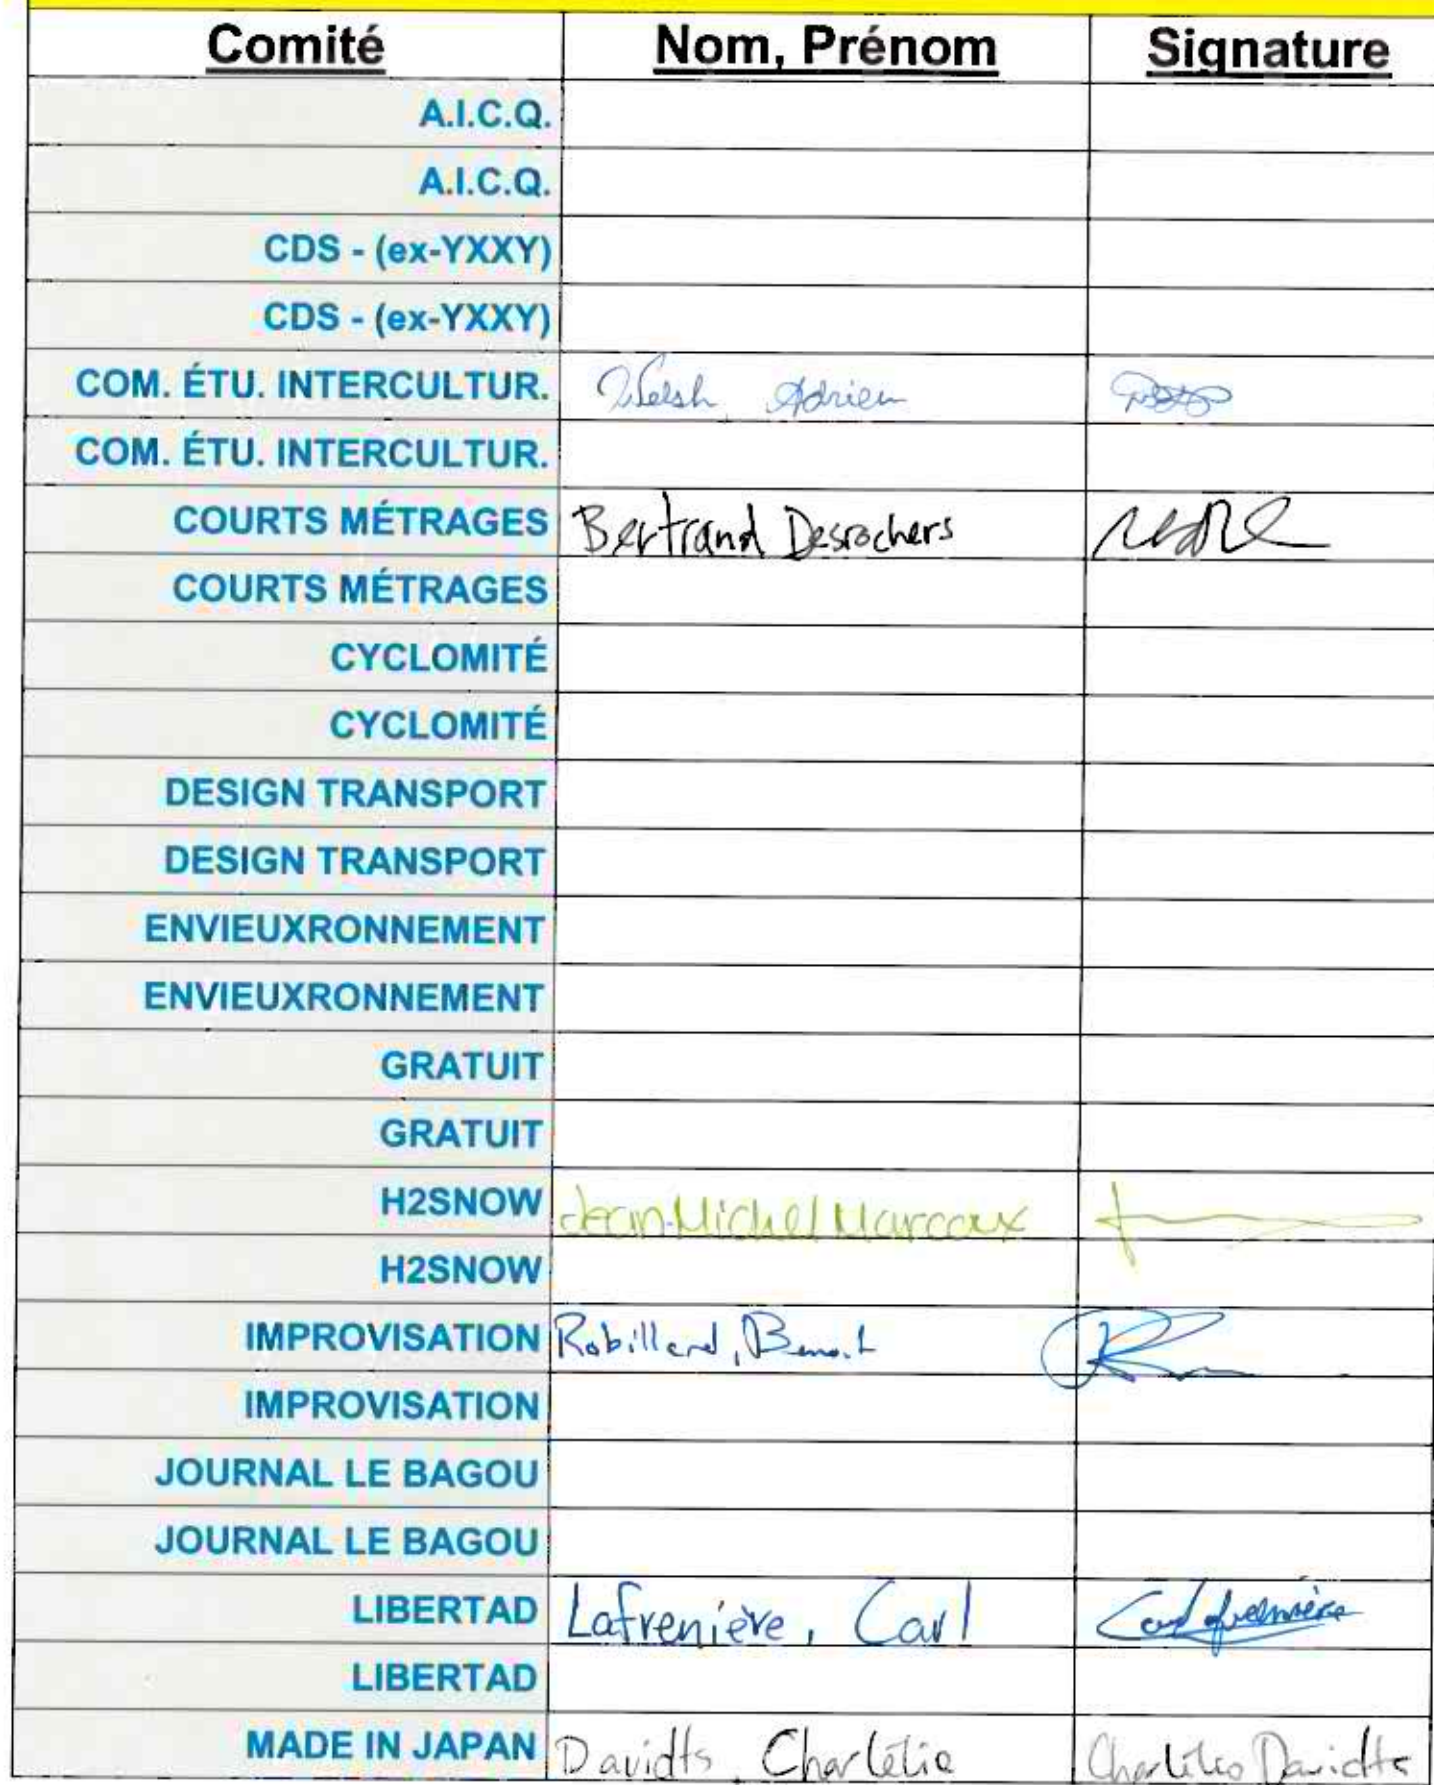 Comité Nom, Prénom Signature
A.I.C.Q.
A.I.C.Q.
CDS - (ex-YXXY)
CDS - (ex-YXXY)
COM. ÉTU. INTERCULTUR. Welsh, Adrien
COM. ÉTU. INTERCULTUR.
COURTS MÉTRAGES Bertrand Desrochers
COURTS MÉTRAGES
CYCLOMITÉ
CYCLOMITÉ
DESIGN TRANSPORT
DESIGN TRANSPORT
ENVIEUXRONNEMENT
ENVIEUXRONNEMENT
GRATUIT
GRATUIT
H2SNOW Jean-Michel Marcoux
H2SNOW
IMPROVISATION Robillard, Benoit
IMPROVISATION
JOURNAL LE BAGOU
JOURNAL LE BAGOU
LIBERTAD Lafrenière, Carl Carl Lafrenière
LIBERTAD
MADE IN JAPAN Davidts, Charlélie Charlélie Davidts